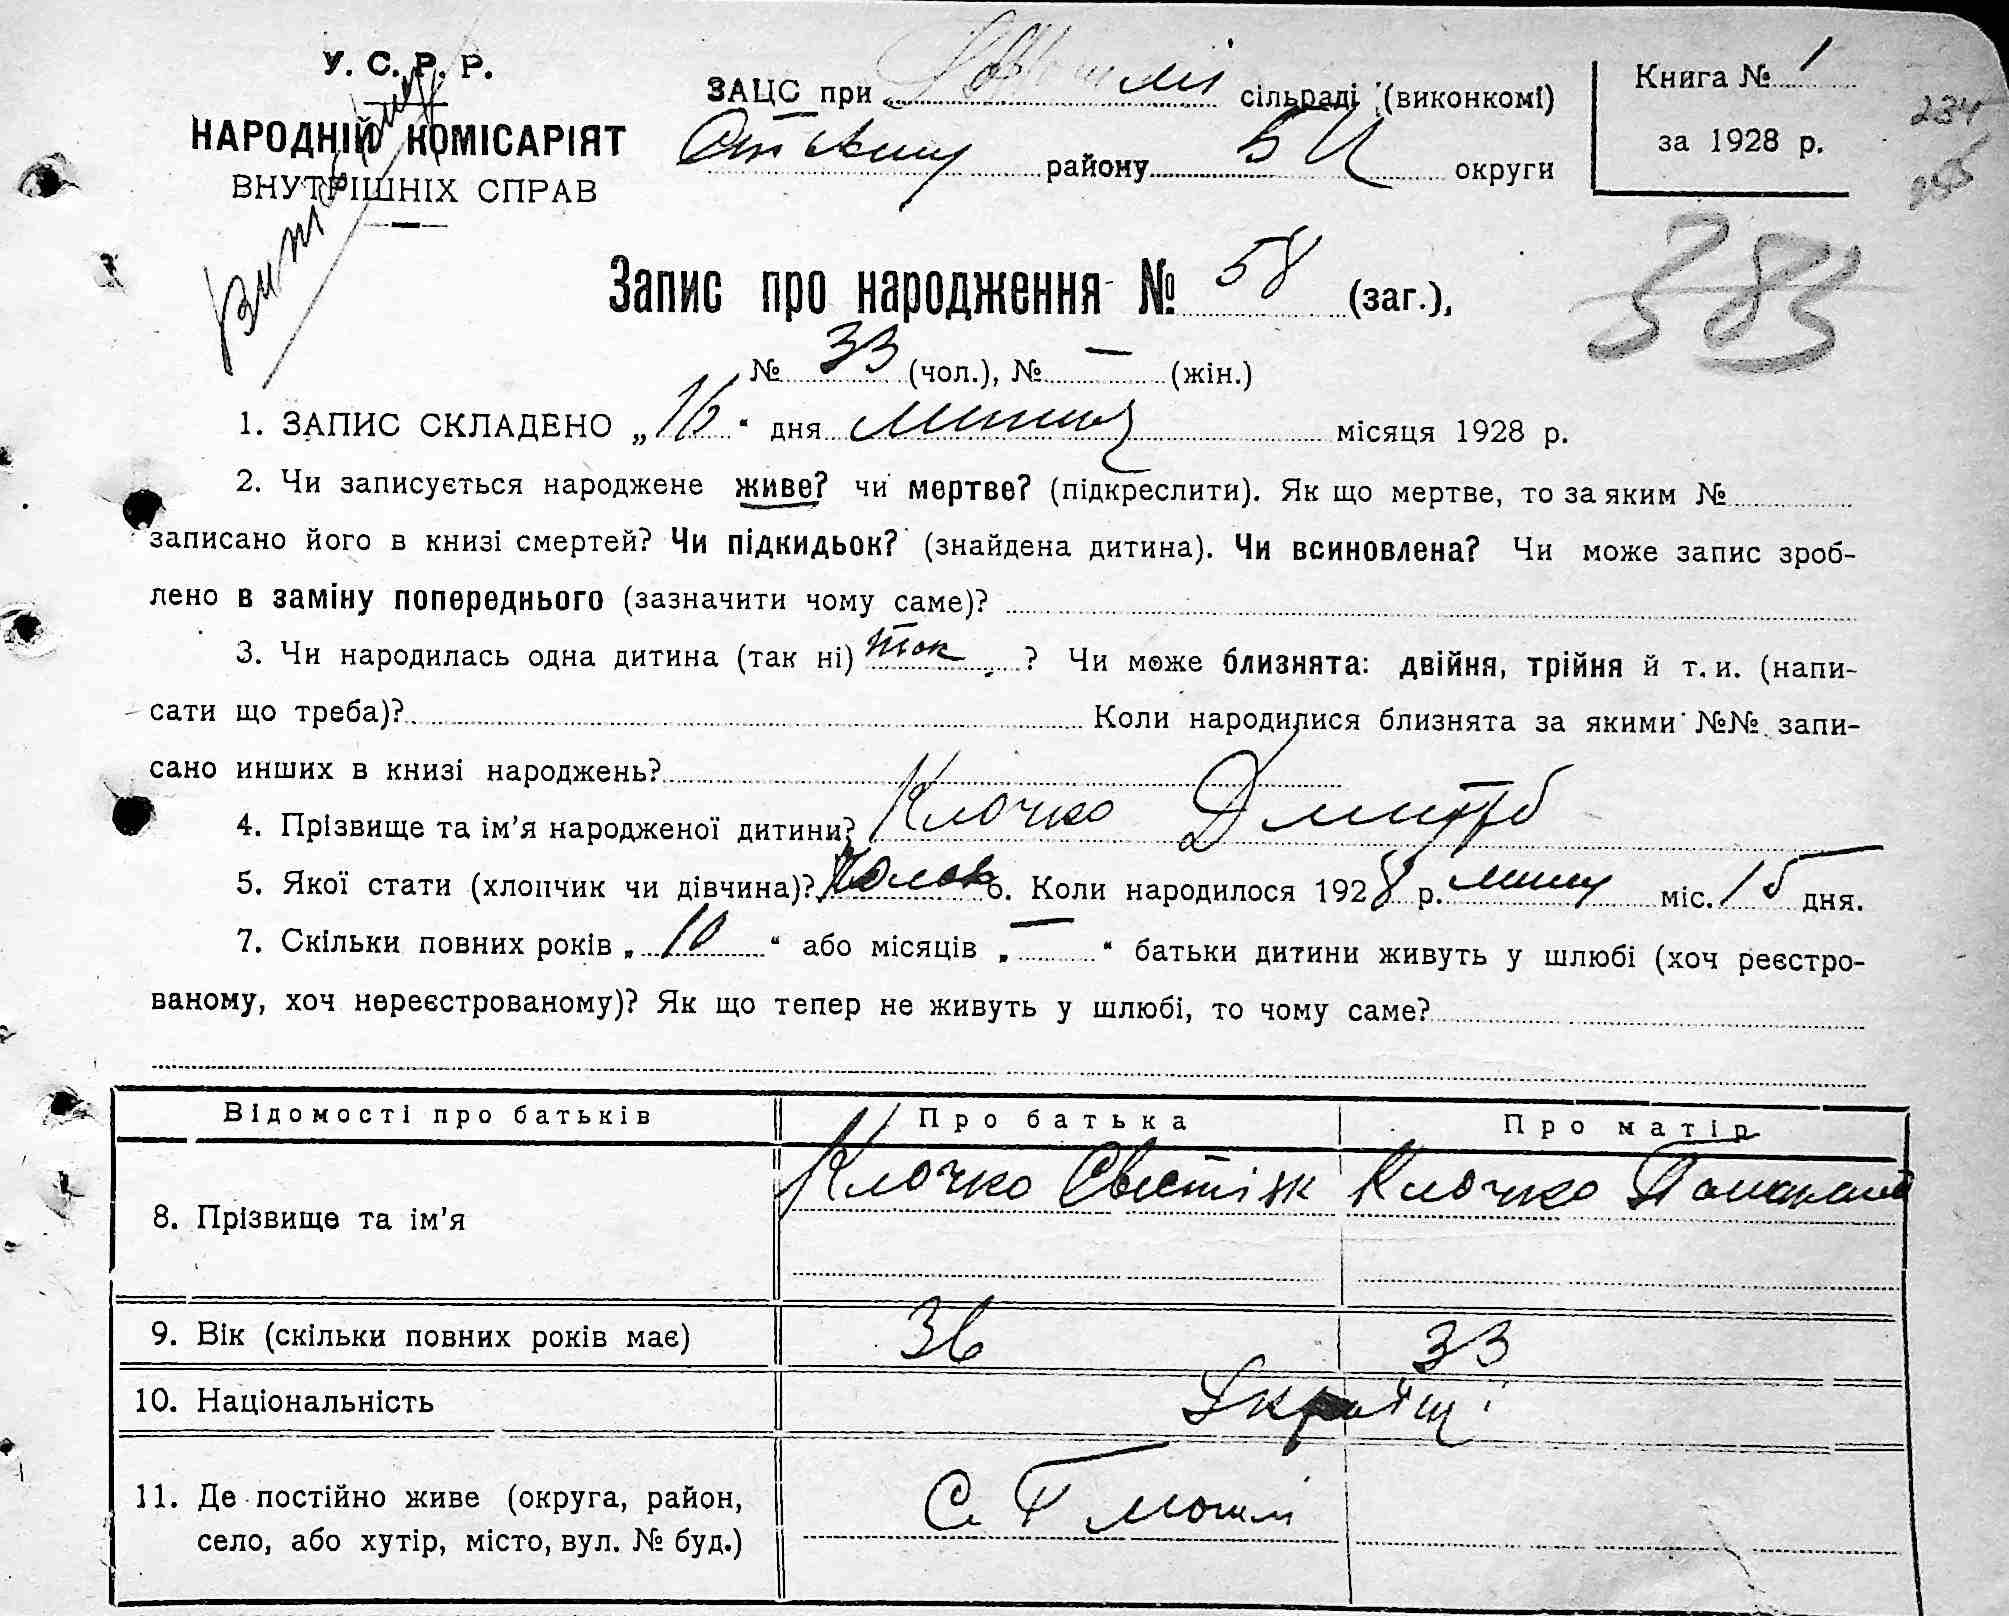 У. С. Р. Р.
НАРОДНІЙ КОМІСАРІЯТ
ВНУТРІШНІХ СПРАВ
ЗАЦС при сільраді (виконкомі)
району округи
Книга № 1
за 1928 р.
234
383
Запис про народження № 58 (заг.),
№ 33 (чол.), № — (жін.)
1. ЗАПИС СКЛАДЕНО „16“ дня місяця 1928 р.
2. Чи записується народжене живе? чи мертве? (підкреслити). Як що мертве, то за яким №
записано його в книзі смертей? Чи підкидьок? (знайдена дитина). Чи всиновлена? Чи може запис зроб-
лено в заміну попереднього (зазначити чому саме)?
3. Чи народилась одна дитина (так ні) так ? Чи може близнята: двійня, трійня й т. и. (напи-
сати що треба)? Коли народилися близнята за якими №№ запи-
сано инших в книзі народжень?
4. Прізвище та ім'я народженої дитини? Клочко Дмитро
5. Якої стати (хлопчик чи дівчина)? 6. Коли народилося 1928 р. міс. 15 дня.
7. Скільки повних років „10“ або місяців „—“ батьки дитини живуть у шлюбі (хоч реєстро-
ваному, хоч нереєстрованому)? Як що тепер не живуть у шлюбі, то чому саме?
Відомості про батьків Про батька Про матір
8. Прізвище та ім'я Клочко Клочко
9. Вік (скільки повних років має) 36 33
10. Національність
11. Де постійно живе (округа, район,
село, або хутір, місто, вул. № буд.) С.